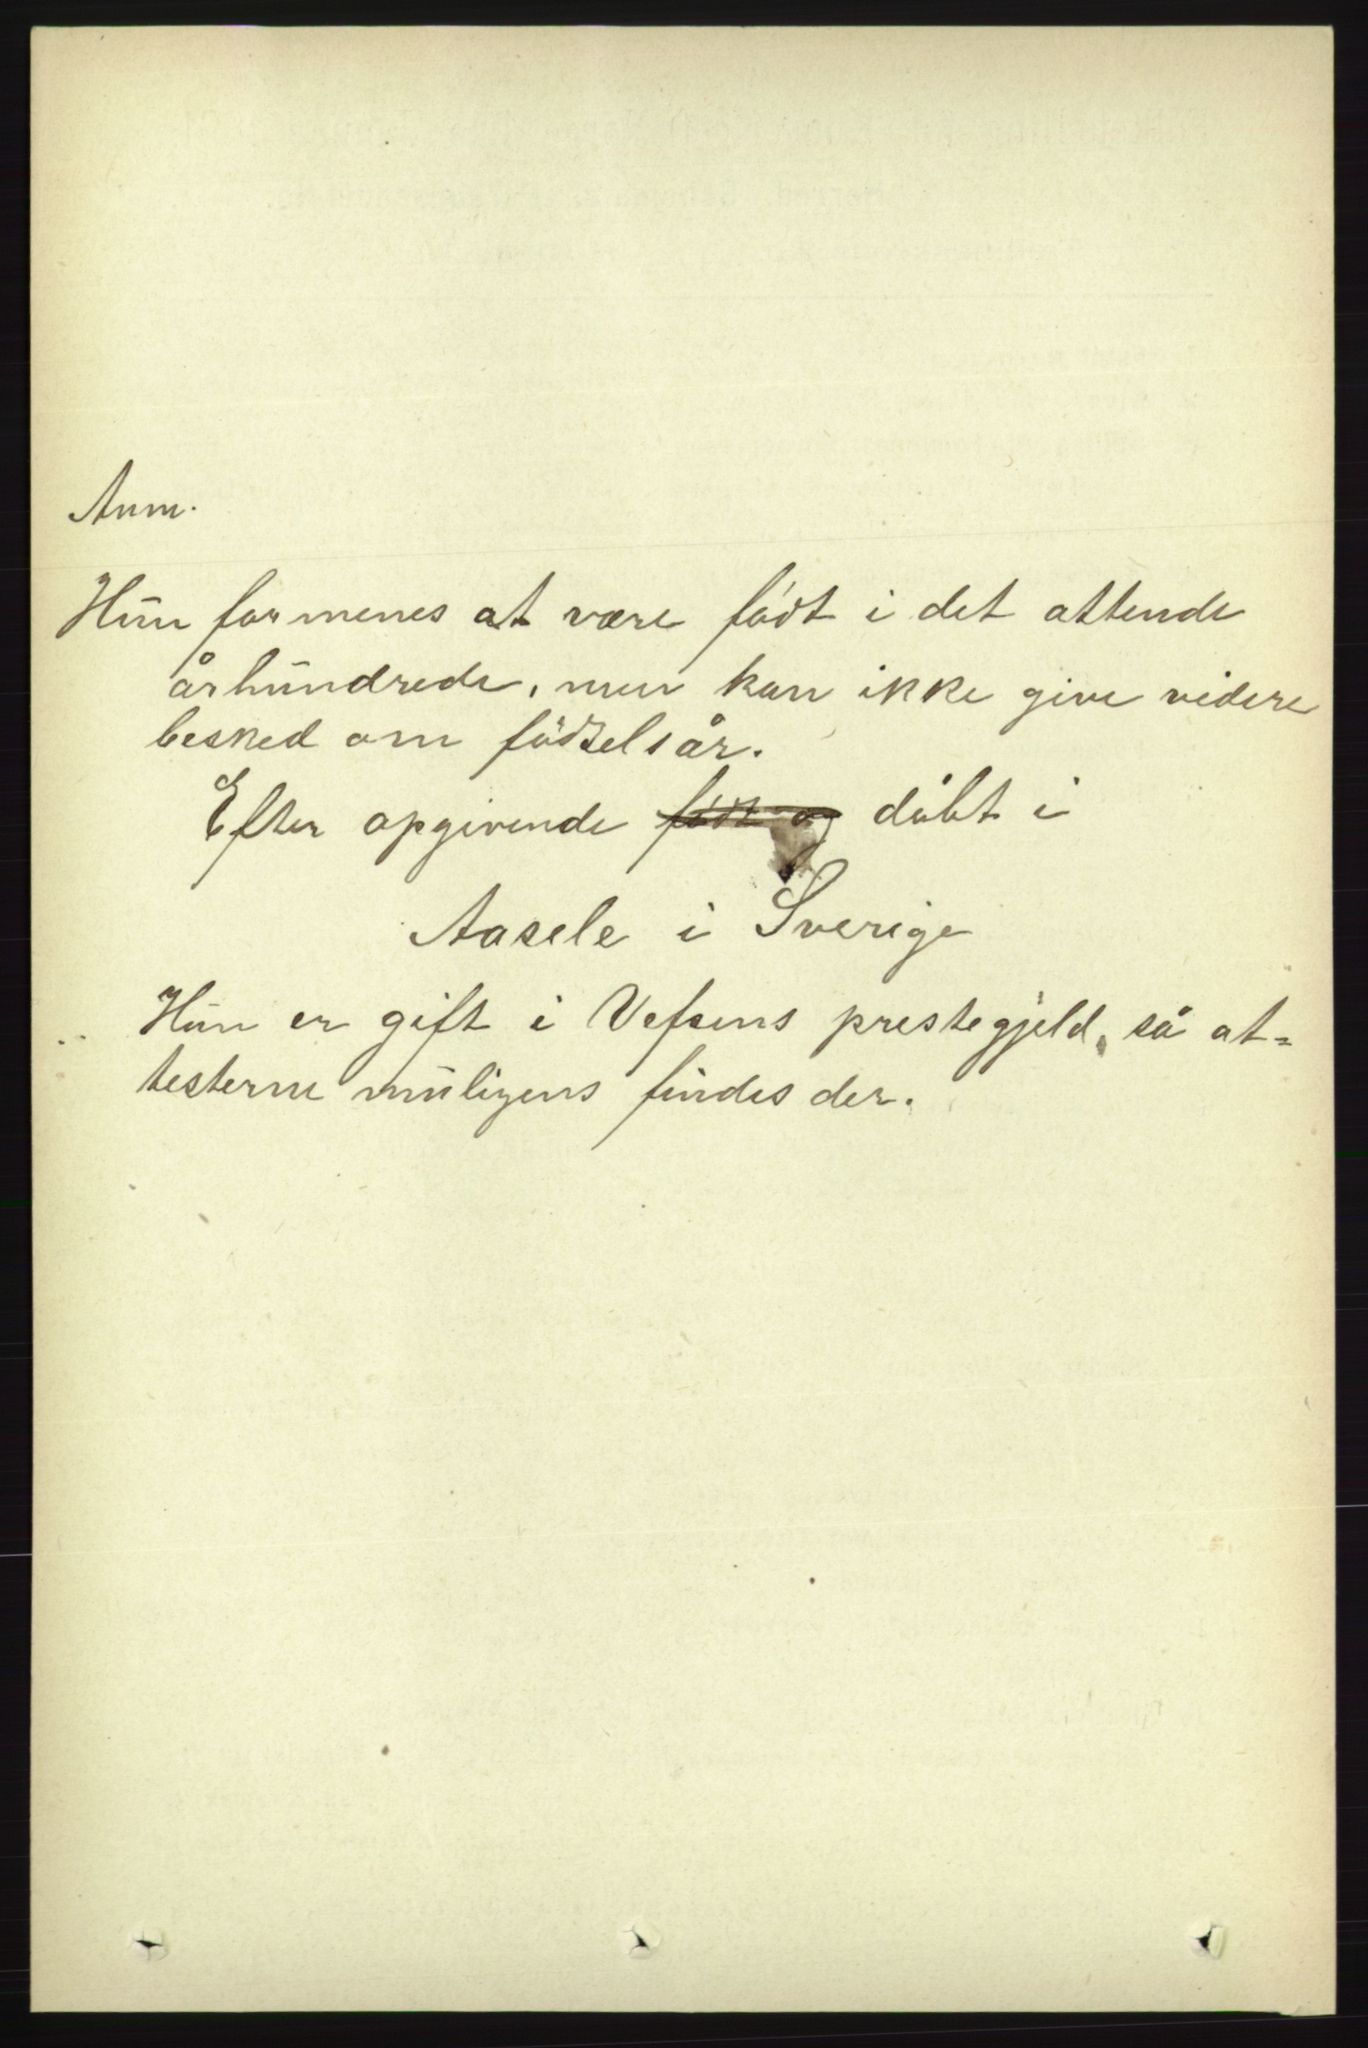 Anm.
Hun formenes at være född i det attende
århundrede, men kan ikke give videre
besked om födselsår.
Efter opgivende födt og döbt i
Aasele i Sverige
Hun er gift i Vefsens prestegjeld, så at=
testerne muligens findes der.